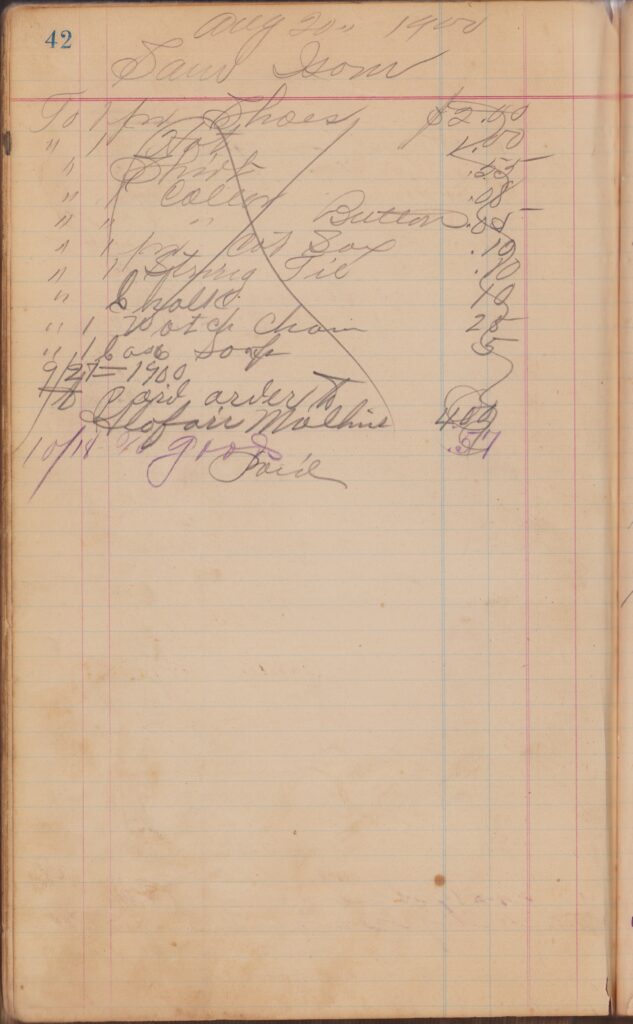 42
Aug 20" 1900
Sam Isom
To 1 pr Shoes $2.00
" 1 Hat 1.00
" 1 Shirt .55
" 1 Coller .08
" " " Button .05
" 1 pr Cot Sox .10
" 1 String Tie .10
" Chalk 10
" 1 Watch Chain 25
" 1 Soap 5
9/27=1900
To Paid order to
Mathis 4.00
10/11 To goods .57
Paid